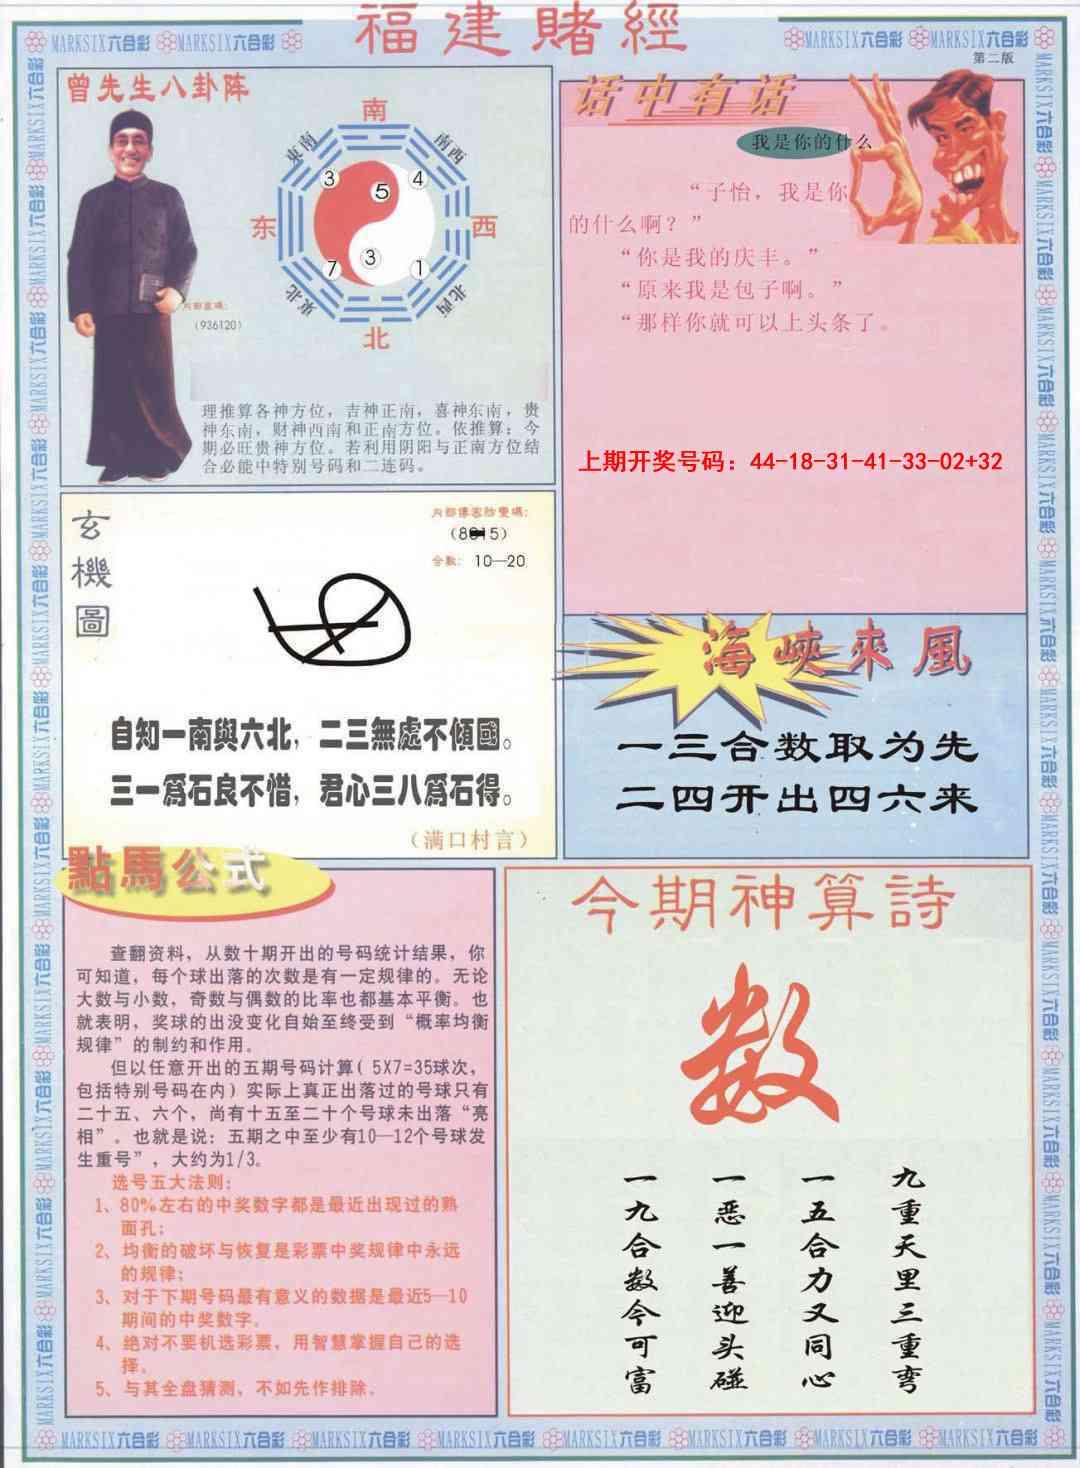 福建賭經
MARKSIX六合彩 MARKSIX六合彩 MARKSIX六合彩 MARKSIX六合彩
第二版
曾先生八卦阵
南
東南 南西
3 5 4
东 西
7 3 1
東北 北西
北
(936120)
理推算各神方位，吉神正南，喜神东南，贵
神东南，财神西南和正南方位。依推算：今
期必旺贵神方位。若利用阴阳与正南方位结
合必能中特别号码和二连码。
话中有话
我是你的什么
“子怡，我是你
的什么啊？”
“你是我的庆丰。”
“原来我是包子啊。”
“那样你就可以上头条了。
上期开奖号码：44-18-31-41-33-02+32
玄機圖
合数：10—20
自知一南與六北，二三無處不傾國。
三一爲石良不惜，君心三八爲石得。
（满口村言）
海峽來風
一三合数取为先
二四开出四六来
點馬公式
查翻资料，从数十期开出的号码统计结果，你
可知道，每个球出落的次数是有一定规律的。无论
大数与小数，奇数与偶数的比率也都基本平衡。也
就表明，奖球的出没变化自始至终受到“概率均衡
规律”的制约和作用。
但以任意开出的五期号码计算（5X7=35球次，
包括特别号码在内）实际上真正出落过的号球只有
二十五、六个，尚有十五至二十个号球未出落“亮
相”。也就是说：五期之中至少有10—12个号球发
生重号”，大约为1/3。
选号五大法则：
1、80%左右的中奖数字都是最近出现过的熟
面孔；
2、均衡的破坏与恢复是彩票中奖规律中永远
的规律；
3、对于下期号码最有意义的数据是最近5—10
期间的中奖数字。
4、绝对不要机选彩票，用智慧掌握自己的选
择。
5、与其全盘猜测，不如先作排除。
今期神算詩
数
九重天里三重弯
一五合力又同心
一恶一善迎头碰
一九合数今可富
MARKSIX六合彩 MARKSIX六合彩 MARKSIX六合彩 MARKSIX六合彩 MARKSIX六合彩 MARKSIX六合彩 MARKSIX六合彩 MARKSIX六合彩